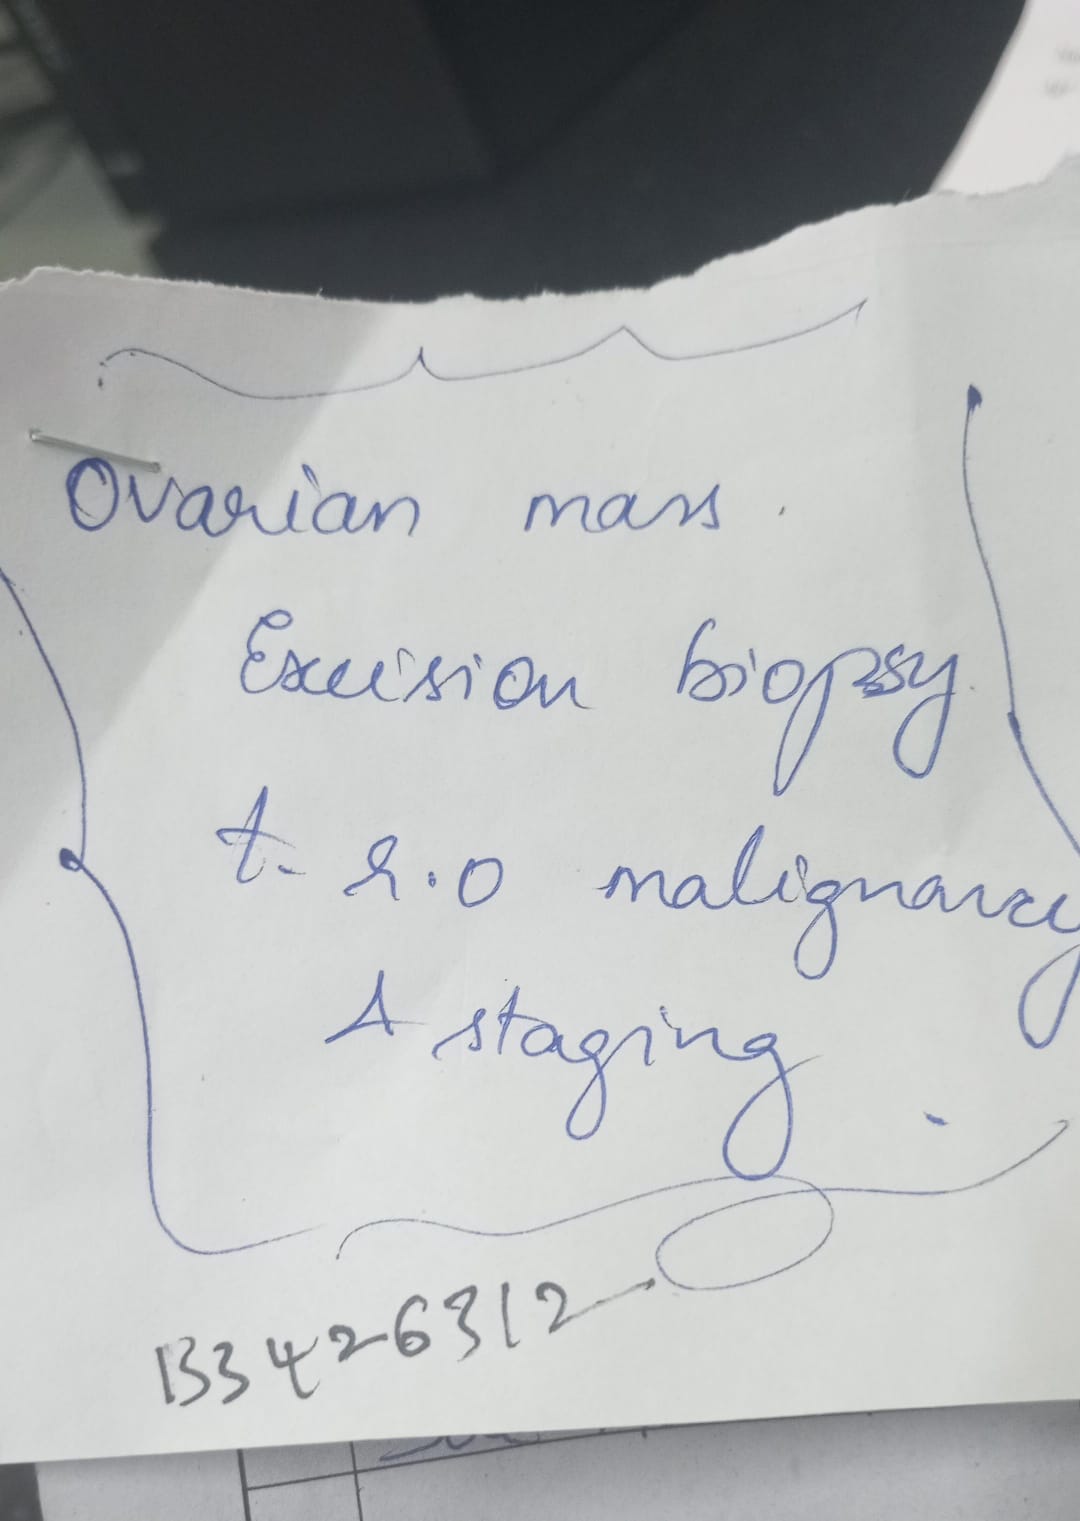 Ovarian mass.
Excision biopsy.
t- r.o malignancy
& staging.
133426312